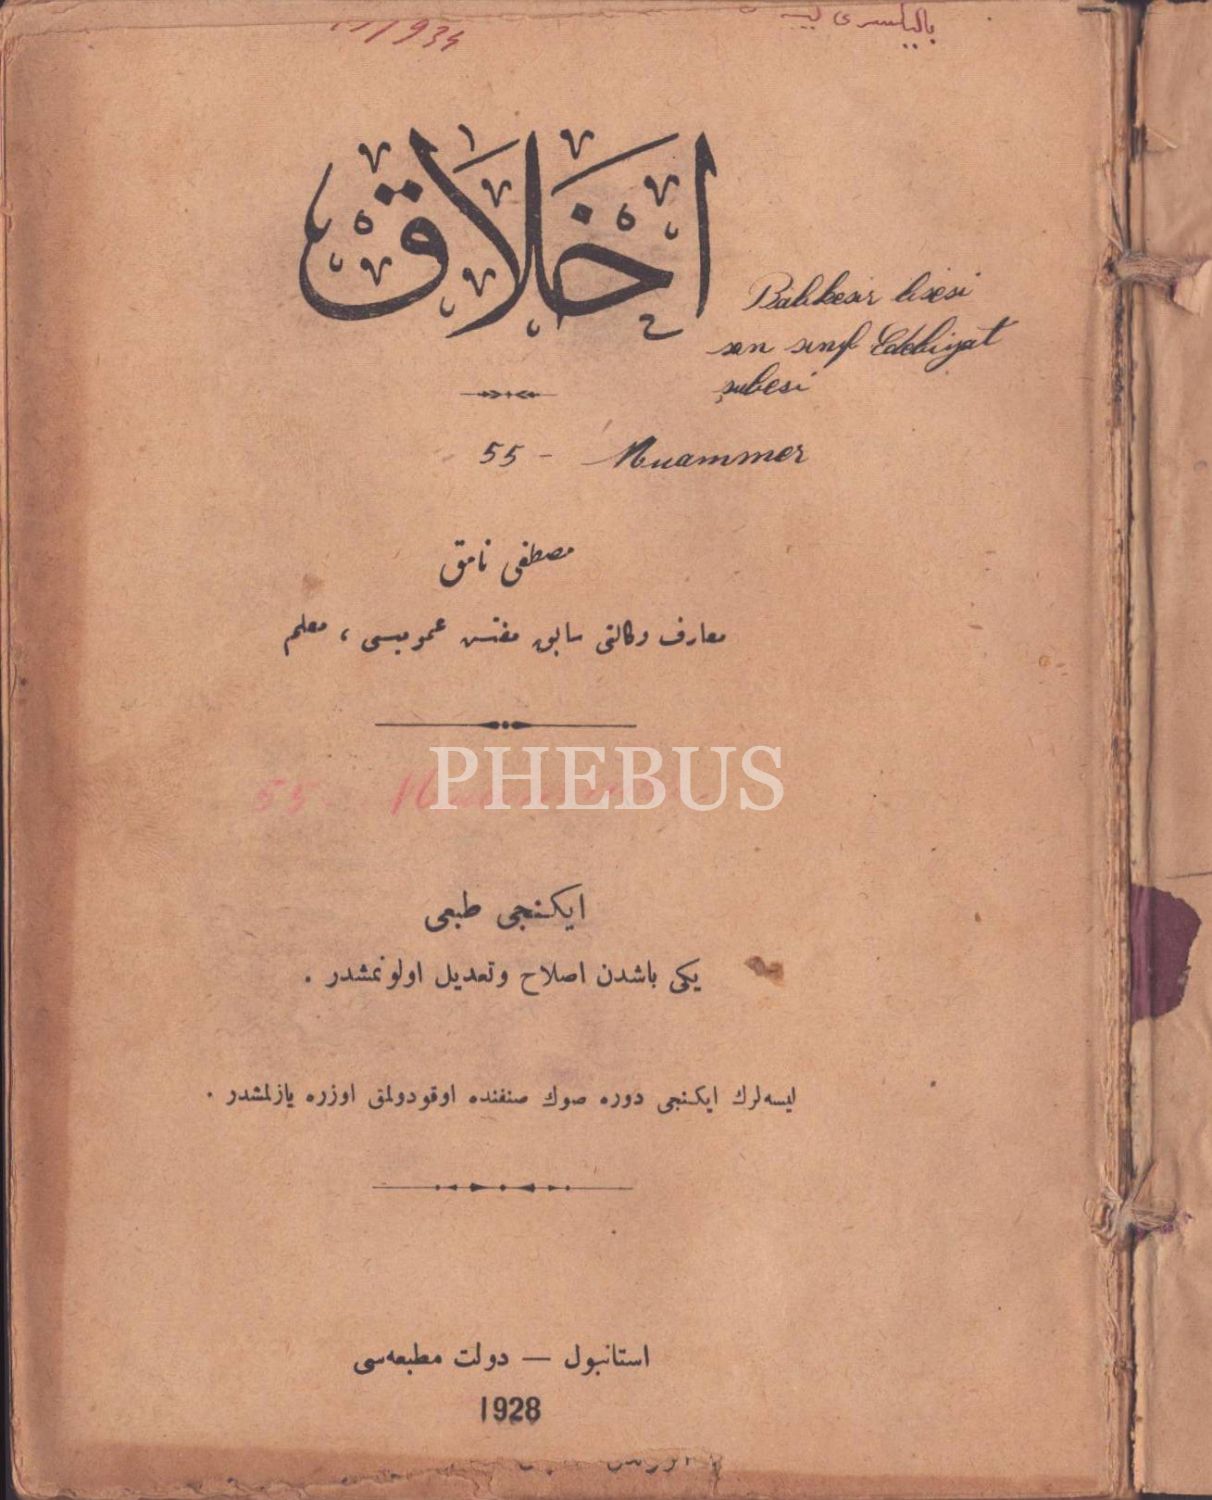 /934
باليكسرى
اخلاق
Balıkesir lisesi
son sınıf Edebiyat
şubesi
55 - Muammer
مصطفى نامق
معارف وكالتى سابق مفتش عموميسى ، معلم
PHEBUS
55
ايكنجى طبعى
يكى باشدن اصلاح وتعديل اولونمشدر .
ليسه‌لرك ايكنجى دوره صوك صنفنده اوقودولمق اوزره يازلمشدر .
استانبول — دولت مطبعه‌سى
1928